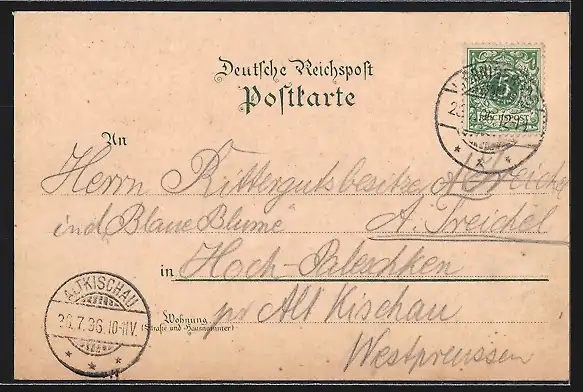 Deutsche Reichspost
Postkarte
5
REICHSPOST
An
Herrn Rittergutsbesitzer A. Treichel
ind „Blaue Blume“ A. Treichel
in Hoch-Paleschken
Wohnung
(Straße und Hausnummer)
per Alt Kischau
Westpreussen
ALTKISCHAU
26.7.96. 10-11V.